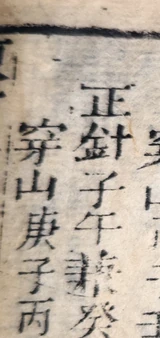 正針子午兼癸
穿山庚子丙